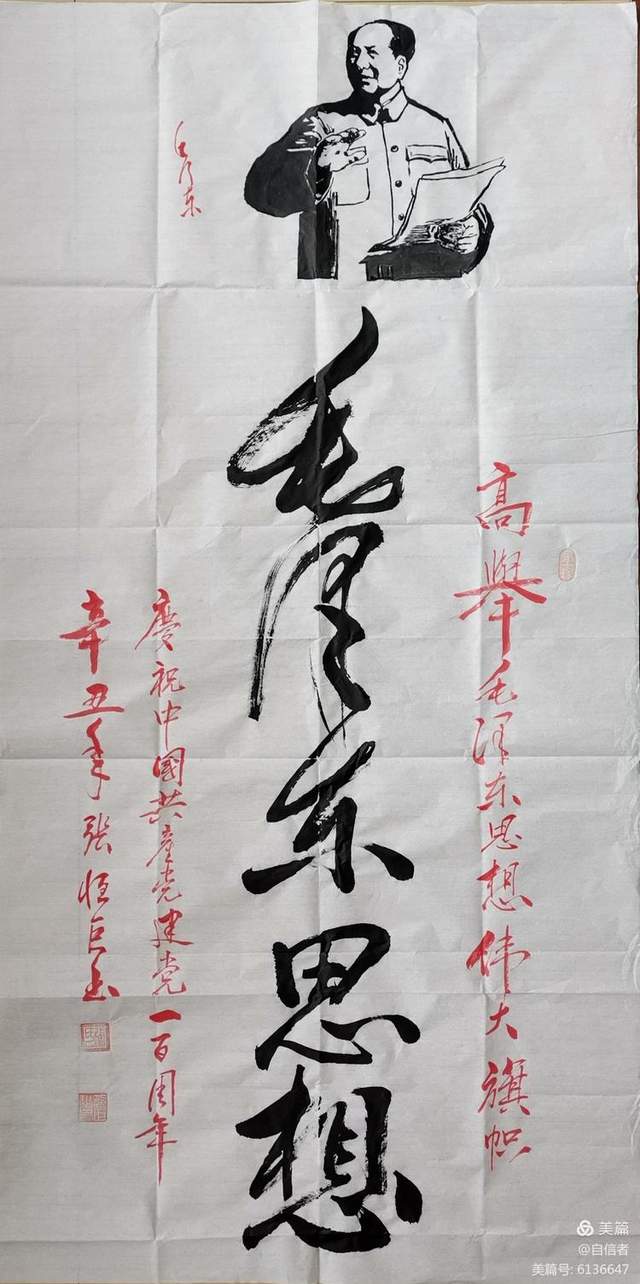 毛泽东
高舉毛泽东思想伟大旗帜
毛泽东思想
慶祝中國共産党建党一百周年
辛丑年張恒巨
美篇
@自信者
美篇号: 6136647